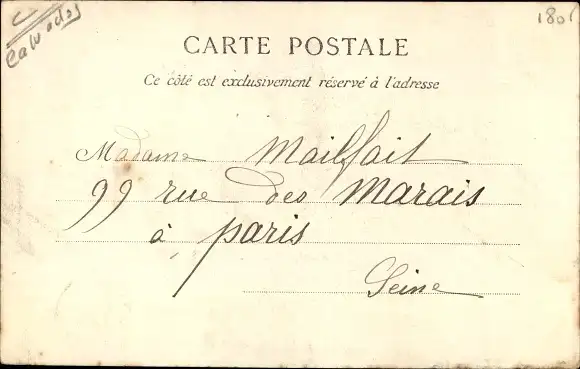 Calvados
180
CARTE POSTALE
Ce côté est exclusivement réservé à l'adresse
Madame Mailfait
99 rue des Marais
à paris
Seine